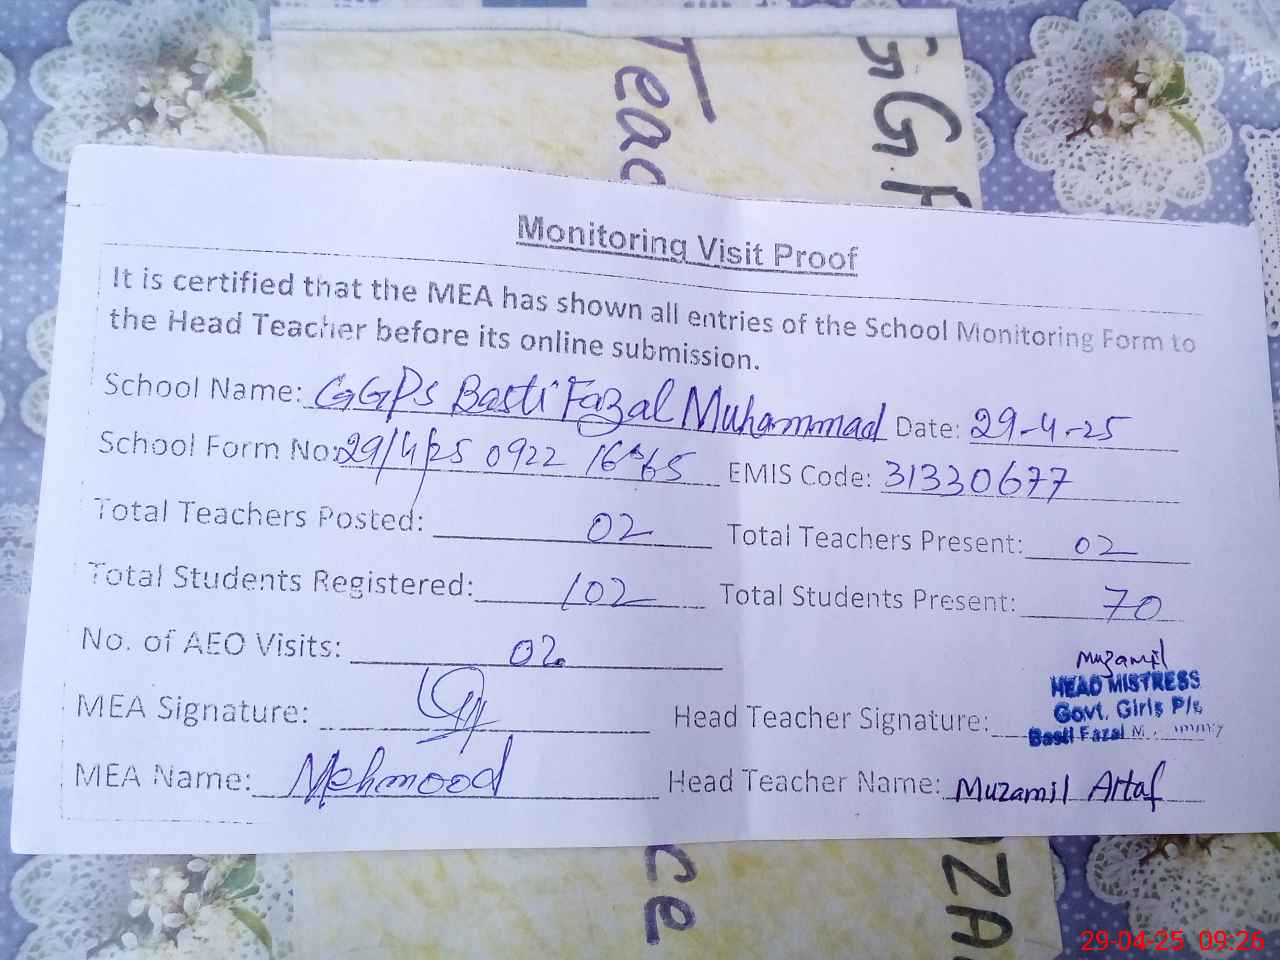 Teac
GG.P
Monitoring Visit Proof
It is certified that the MEA has shown all entries of the School Monitoring Form to
the Head Teacher before its online submission.
School Name: GGPS Basti Fazal Muhammad Date: 29-4-25
School Form No: 29/4/25 0922 EMIS Code: 31330677
Total Teachers Posted: 02 Total Teachers Present: 02
Total Students Registered: 102 Total Students Present: 70
No. of AEO Visits: 02
Muzamil
HEAD MISTRESS
MEA Signature: Head Teacher Signature: Govt. Girls P/s
Basti Fazal M.
MEA Name: Mehmood Head Teacher Name: Muzamil Altaf
ce
OZA
29-04-25 09:26